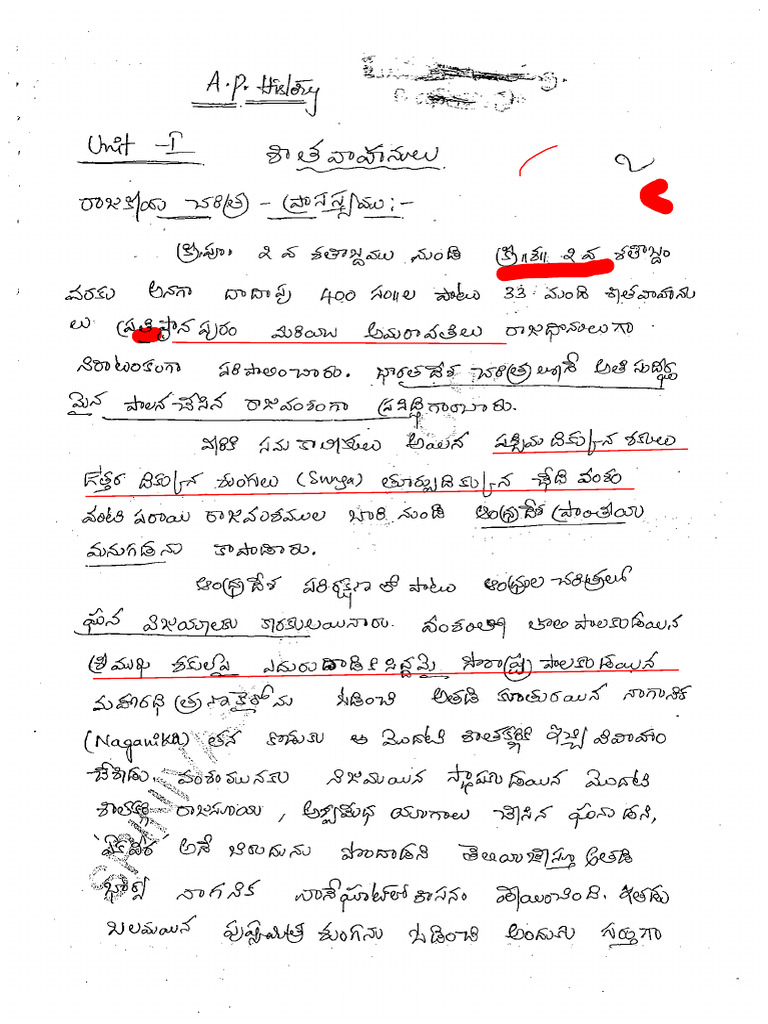 A.P. History
Unit - I శాతవాహనులు
రాజకీయ చరిత్ర - ప్రాశస్త్యము :-
క్రీ.పూ. 2 వ శతాబ్దము నుండి క్రీ॥శ॥ 2 వ శతాబ్దం
వరకు అనగా దాదాపు 400 సం॥ల పాటు 33 మంది శాతవాహను
లు ప్రతిష్ఠానపురం మరియు అమరావతిలు రాజధానులుగా
నిరాటంకంగా పరిపాలించారు. భారతదేశ చరిత్రలోనే అతి సుదీర్ఘ
మైన పాలన చేసిన రాజవంశంగా ప్రసిద్ధిగాంచారు.
వీరికి సమకాలీకులు అయిన పశ్చిమ దిక్కున శకులు
ఉత్తర దిక్కున శుంగులు (Sunga) తూర్పుదిక్కున ఛేది వంశం
వంటి పరాయి రాజవంశముల బారి నుండి ఆంధ్రుదేశ ప్రాంతీయ
మనుగడను కాపాడారు.
ఆంధ్రుదేశ పరిరక్షణ తో పాటు ఆంధ్రుల చరిత్రలో
ఘన విజయాలకు కారకులయినారు. వంశంలో తొలి పాలకుడయిన
శ్రీముఖ శకులపై ఎదురుదాడికి సిద్ధమై సౌరాష్ట్ర పాలకుడయిన
మహారథి త్రణకైరోను ఓడించి అతడి కూతురయిన నాగానిక
(Naganika) తన కొడుకు ఆ మొదటి శాతకర్ణికి ఇచ్చి వివాహం
చేశాడు. వంశంమునకు నిజమయిన స్థాపకుడయిన మొదటి
శాతకర్ణి రాజసూయ, అశ్వమేధ యాగాలు చేసిన ఘనుడని,
'ఏకవీర' అనే బిరుదును పొందాడని తెలియచేస్తూ అతడి
భార్య నాగనిక నానేఘాట్‌లో శాసనం వ్రాయించింది. ఇతడు
బలమయిన పుష్యమిత్ర శుంగను ఓడించి అందుకు సరిగా